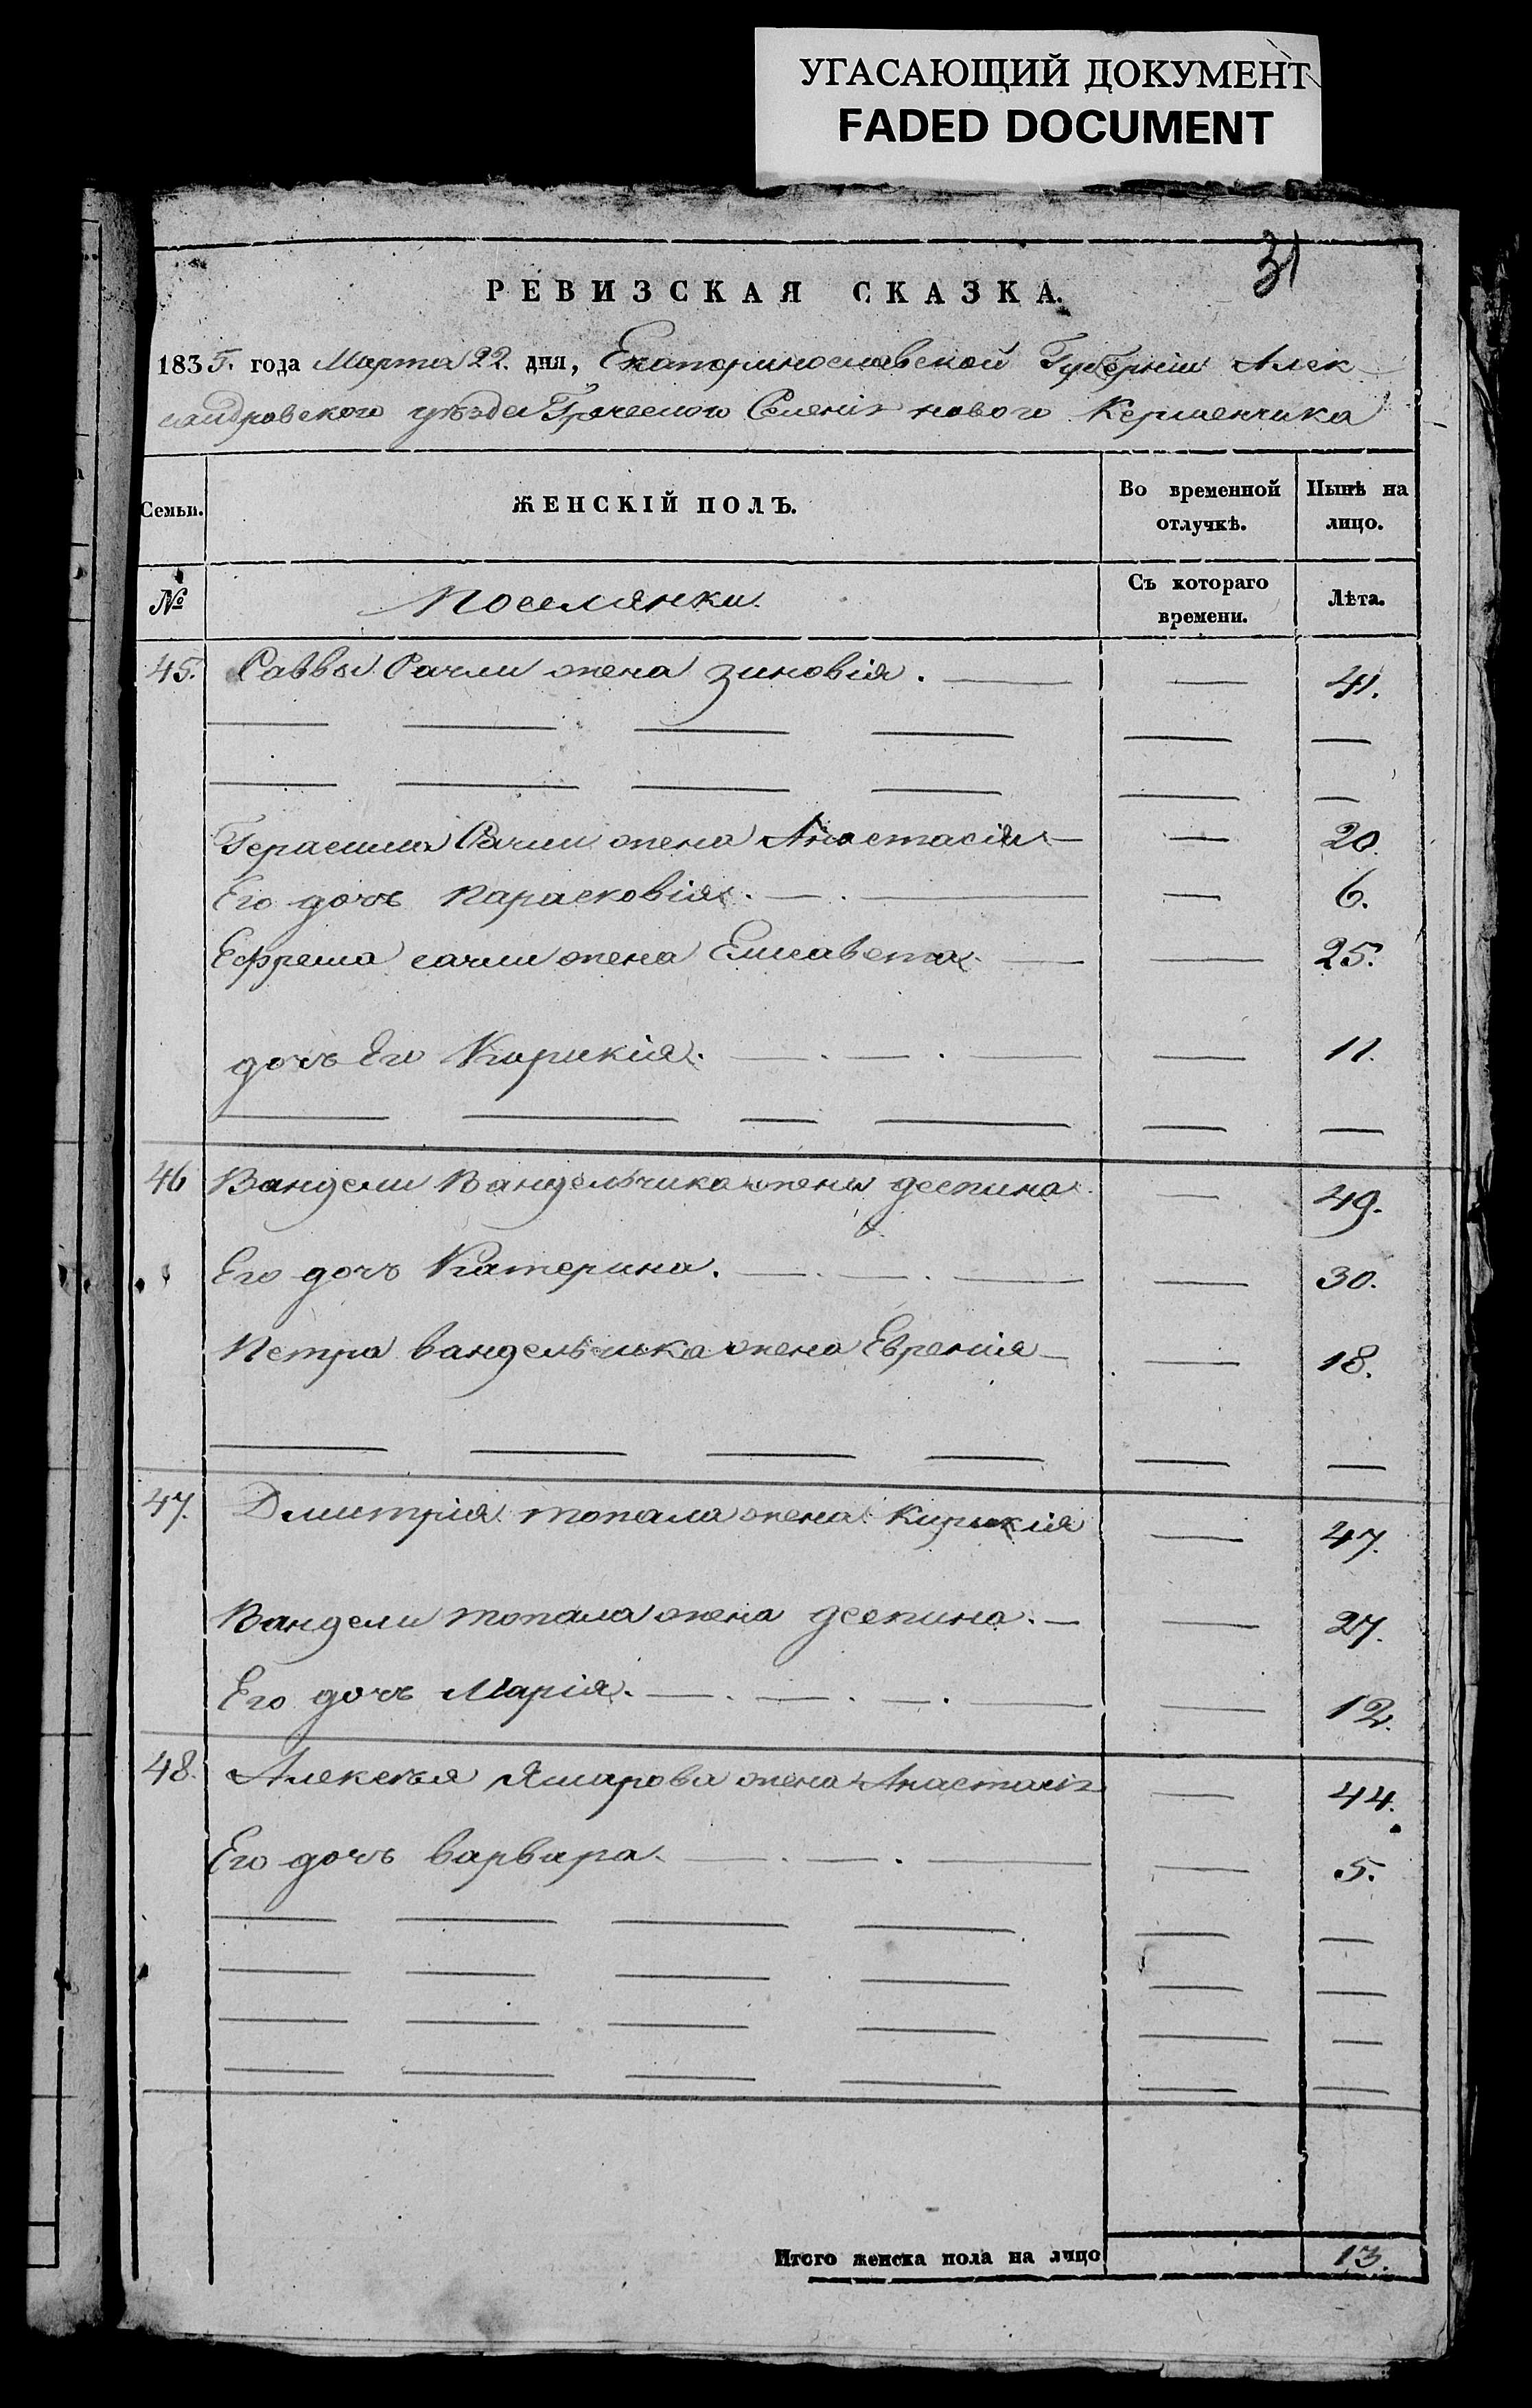 УГАСАЮЩИЙ ДОКУМЕНТ
FADED DOCUMENT
31
РЕВИЗСКАЯ СКАЗКА.
1835. года Марта 22. дня, Екатеринославской Губерніи Алек
сандровского уѣзда Греческого Селенія нового Керменчика
Семьи. ЖЕНСКІЙ ПОЛЪ. Во временной отлучкѣ. Нынѣ на лицо.
№ Поселянки. Съ котораго времени. Лѣта.
45. Саввы Сачли жена Зиновія. — — 41.
Герасима Сачли жена Анастасія — — 20.
Его дочь Парасковія. — — 6.
Ефрема сачли жена Елисавета — — 25.
дочь Его Кирикія. — — 11.
46 Вандели Вандельчика жена деспина — 49.
Его дочь Катерина. — — 30.
Петра вандельчика жена Евгенія — — 18.
47. Дмитрія топала жена Кирикія — 47.
Вандели топала жена деспина. — — 27.
Его дочь Марія. — — 12.
48. Алексѣя Ямарова жена Анастасія — 44.
Его дочь варвара. — — 5.
Итого женска пола на лицо 13.